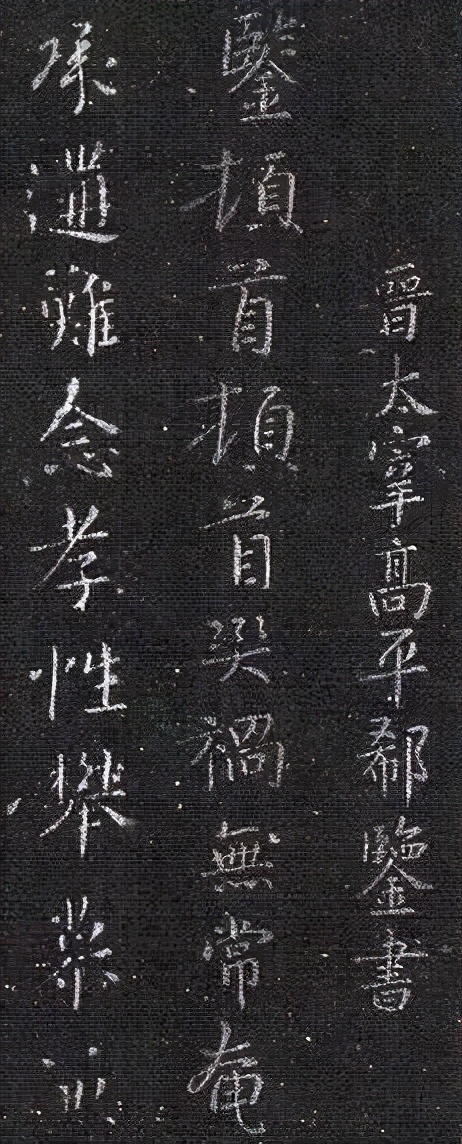 晉太宰高平郗鑒書
鑒頓首頓首災禍無常奄
承遘難念孝性攀慕